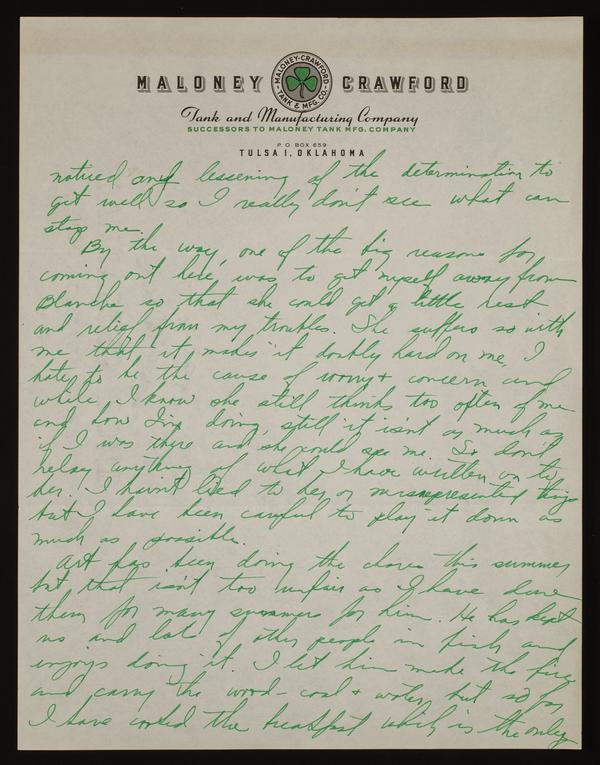 MALONEY CRAWFORD
MALONEY-CRAWFORD TANK & MFG. CO.
Tank and Manufacturing Company
SUCCESSORS TO MALONEY TANK MFG. COMPANY
P. O. BOX 659
TULSA 1, OKLAHOMA
noticed any lessening of the determination to
get well so I really don't see what can
stop me.
By the way, one of the big reasons for
coming out here, was to get myself away from
Blanche so that she could get a little rest
and relief from my troubles. She suffers so with
me that it makes it doubly hard on me. I
hate to be the cause of worry + concern and
while I know she still thinks too often of me
and how I'm doing, still it isn't as much as
if I was there and she could see me. So don't
relay anything of what I have written on to
her. I havn't lied to her or misrepresented things
but I have been careful to play it down as
much as possible.
Art has been doing the chores this summer
but that isn't too unfair as I have done
them for many summers for him. He has kept
us and lots of other people in fish and
enjoys doing it. I let him make the fire
and carry the wood - coal + water, but so far
I have cooked the breakfast which is the only